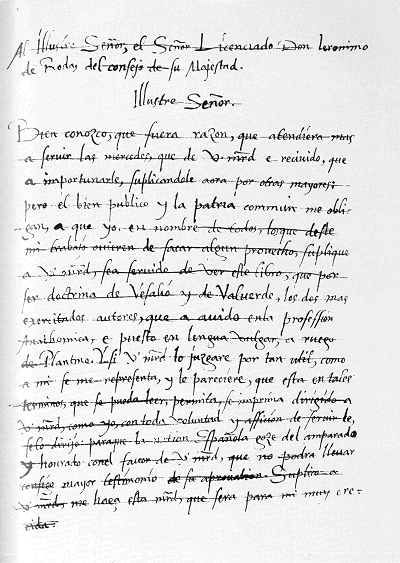 Al Illustre Señor, el Señor Licenciado Don Ieronimo
de Rodas del consejo de su Majestad.
Illustre Señor.
Bien conozco, que fuera razon, que atendiera mas
a servir las mercedes, que de V. mrd e recivido, que
a importunarle, suplicandole aora por otras mayores:
pero el bien publico y la patria commun me obli-
gan, a que yo, en nombre de todos, los que deste
mi trabajo quieren de sacar algun provecho, suplique
a V. mrd, sea servido de ver este libro, que por
ser doctrina de Vesalio y de Valverde, los dos mas
exercitados autores, que a avido en la professión
Anathomica, e puesto en lengua vulgar, a ruego
de Plantino. Y si V. mrd lo juzgare por tan util, como
a mi se me representa, y le pareciere, que esta en tales
terminos, que se pueda leer, permita, se imprima dirigido a
V. mrd, como yo, con toda voluntad y affición de servir le,
se lo dirijo: paraque la nation Española goze del amparado
y honrato con el favor de V. mrd, que no podra llevar
consigo mayor testimonio de su aprovation. Suplico a
V. mrd, me haga esta mrd, que sera para mi muy cre-
cida.